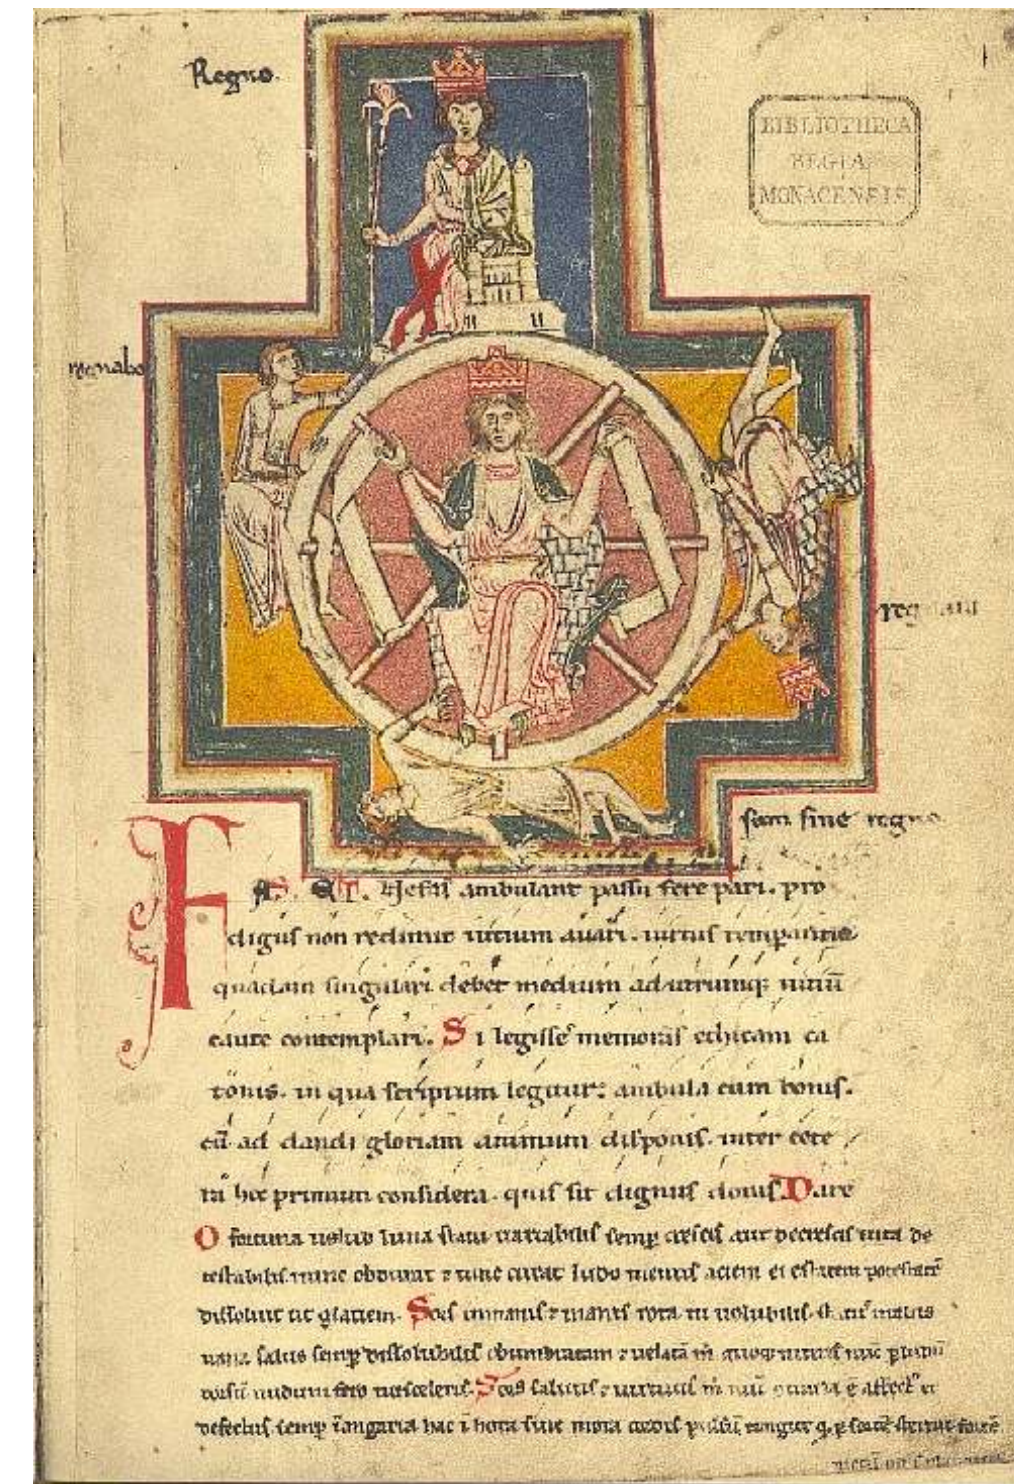 Regno.
BIBLIOTHECA
REGIA
MONACENSIS
regnabo
regnaui
sum sine regno
FAS ET Nefas ambulant passu fere pari. pro
digus non redimit uitium auari. uirtus temperantia
quadam singulari debet medium ad utrumq; uitiū
caute contemplari. Si legisse memoras ethicam ca
tonis. in qua scriptum legitur: ambula cum bonis.
cū ad dandi gloriam animum disponis. inter cete
ra hoc primum considera. quis sit dignus donis. Dare
O fortuna uelud luna statu uariabilis semp crescis aut decrescis uita de
testabilis. nunc obdurat & tunc curat ludo mentis aciem et potestatē
dissoluit ut glaciem. Sors inmanis & inanis rota tu uolubilis. status malus
uana salus semp dissolubilis obumbratam & uelatā m quoq niteris nūc p ludū
dorsū nudum fero tui sceleris. Sors salutis & uirtutis m nūc ē affectꝰ et
defectus semp ī angaria hac ī hora sine mora cordis pulsū tangite q p sortē sternit fortē